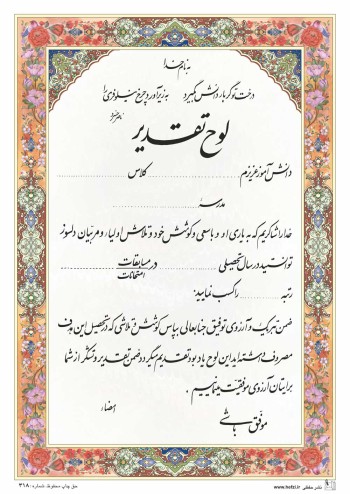 به نام خدا
درخت تو گر بار دانش بگیرد به زیر آوری چرخ نیلوفری را
ناصر خسرو
لوح تقدیر
دانش آموز عزیزم ........ کلاس ........
مدرسه ........
خدا را شاکریم که به یاری او و با سعی و کوشش خود و تلاش اولیاء و مربیان دلسوز
توانستید در سال تحصیلی ........ در مسابقات ........
امتحانات
رتبه ........ را کسب نمایید.
ضمن تبریک و آرزوی توفیق جنابعالی بپاس کوشش و تلاشی که در تحصیل این هدف
مصروف داشته اید این لوح یادبود تقدیم میگردد ضمن تقدیر و تشکر از شما
برایتان آرزوی موفقیت مینماییم.
امضاء
موفق باشی
حق چاپ محفوظ شماره: ۳۱۸
www.hefzi.ir نشر حفظی